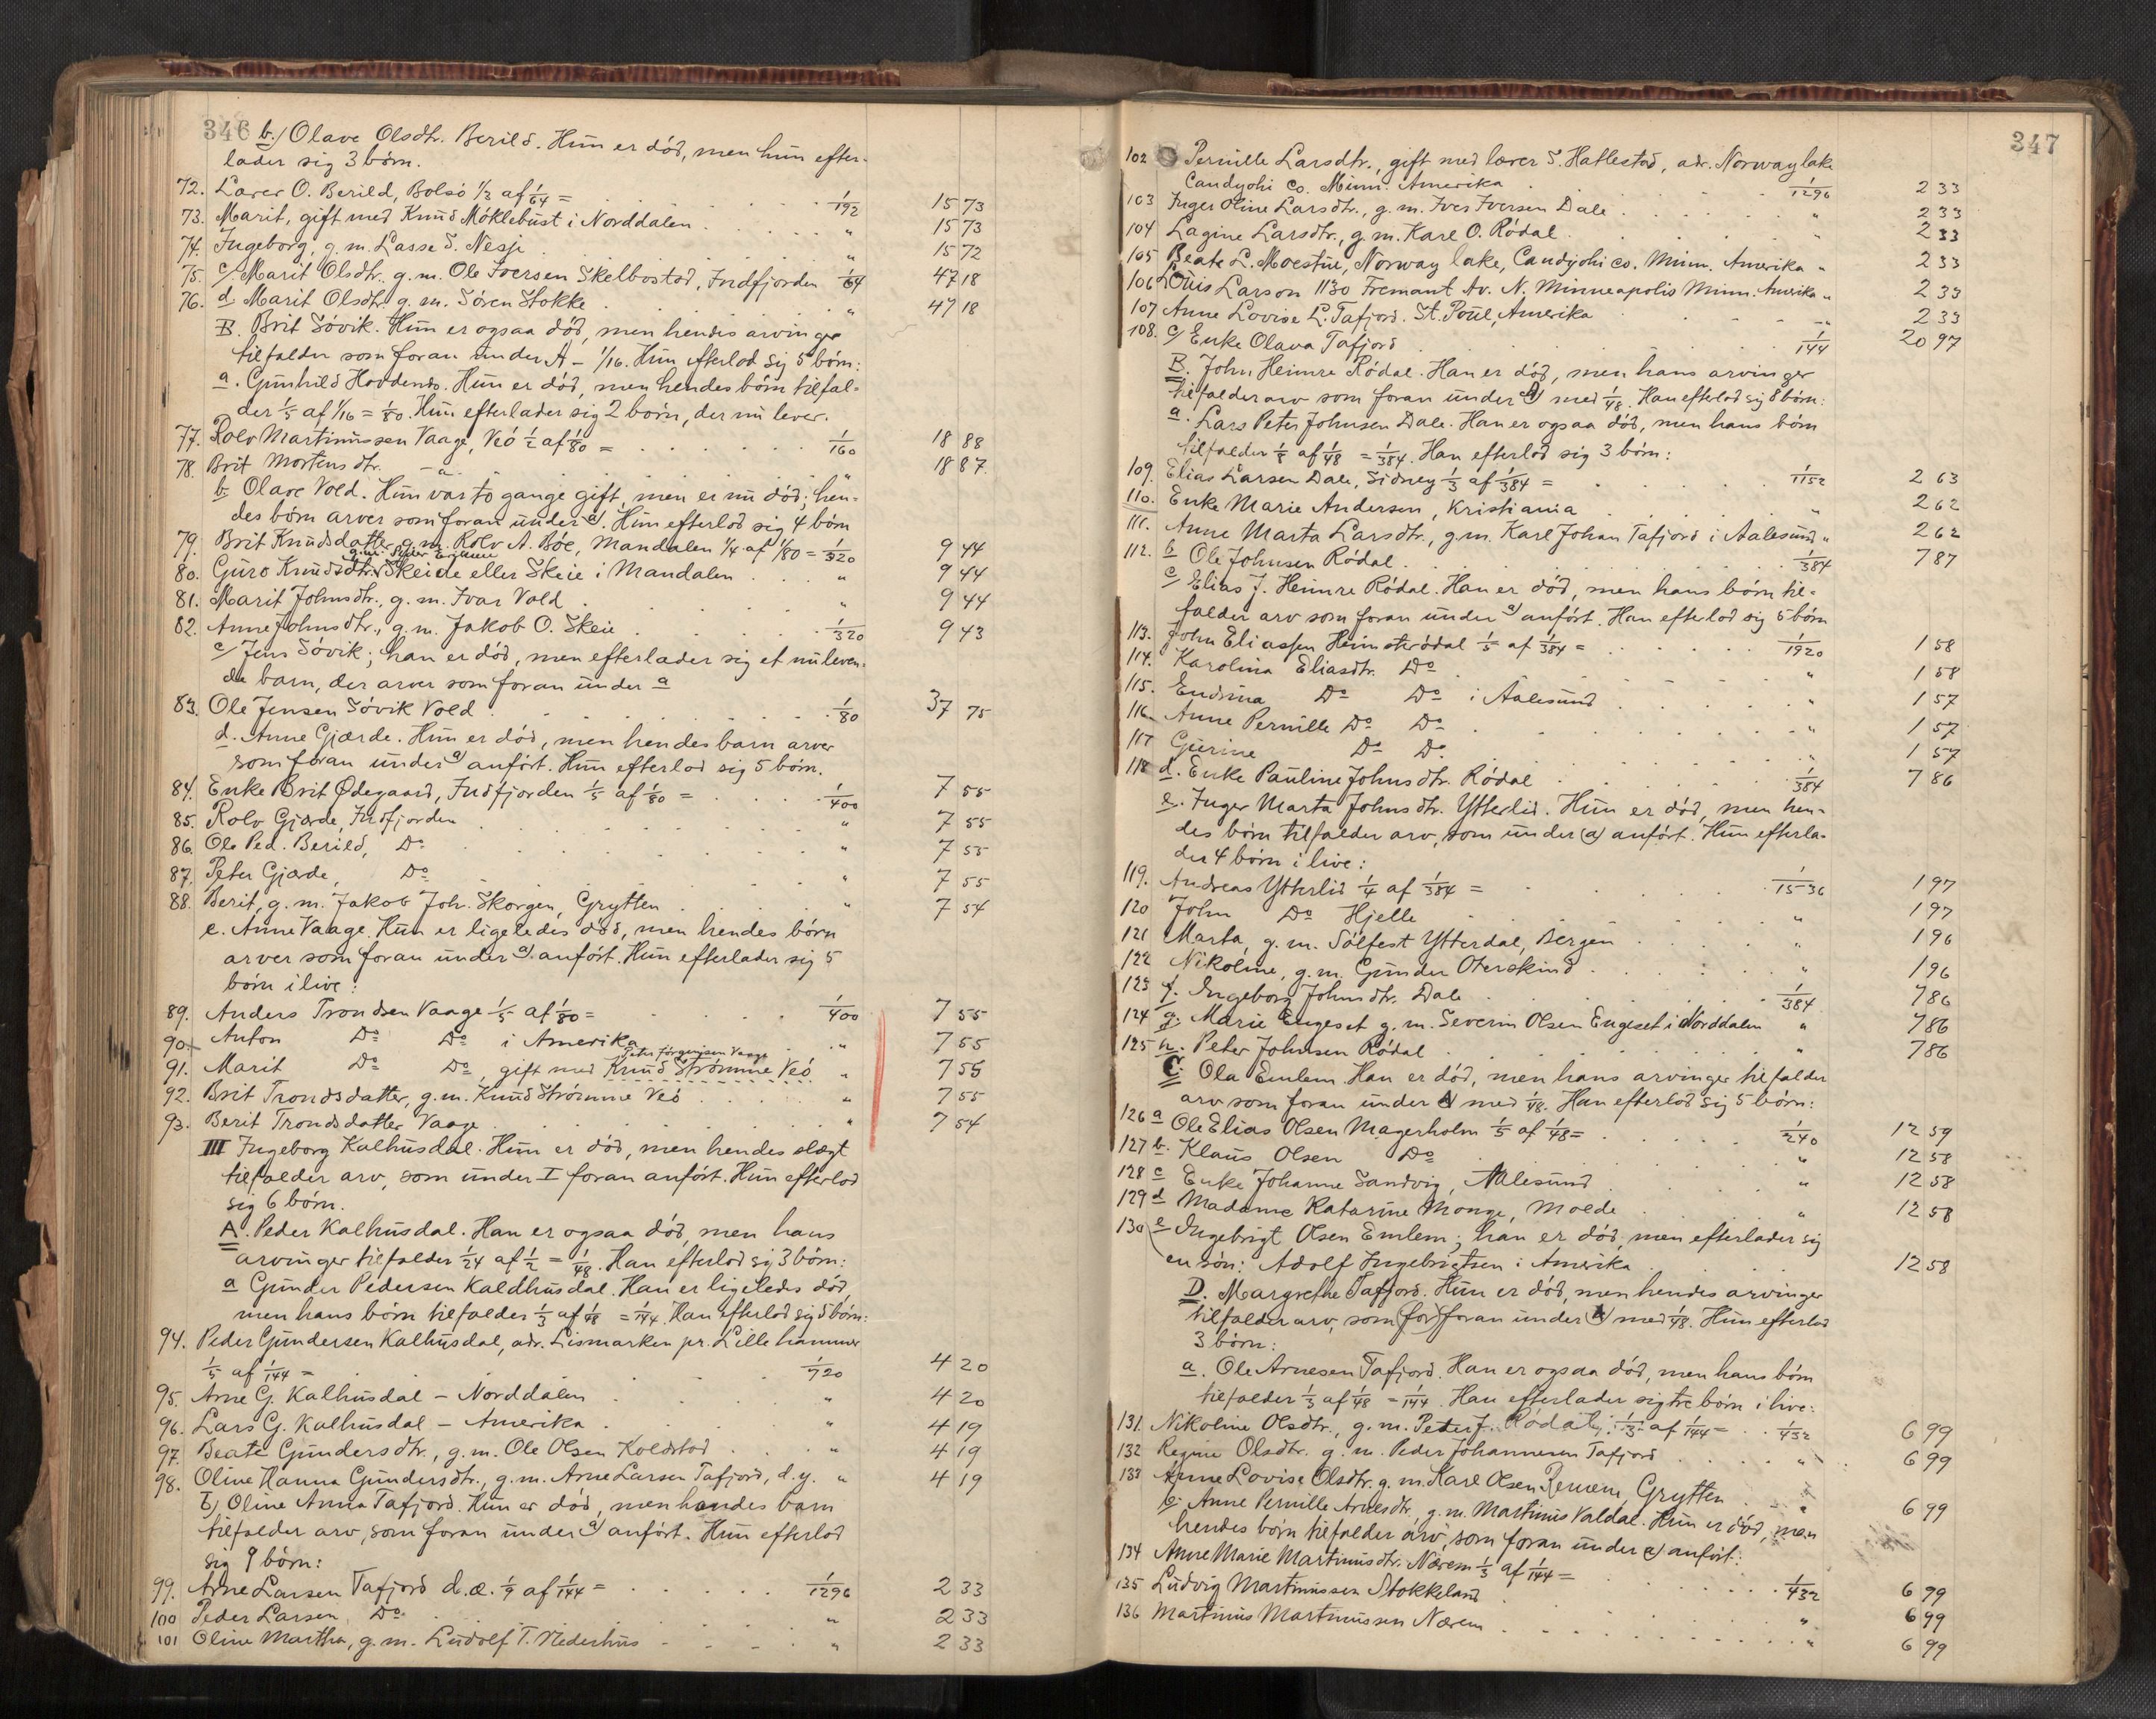 346
b./ Olave Olsdtr. Berild. Hun er död, men hun efter-
lader sig 3 börn.
72. Lærer O. Berild, Bolsö 1/3 af 1/64 = 1/192 15 73
73. Marit, gift med Knud Möklebust i Norddalen " 15 73
74. Ingeborg, g. m. Lasse S. Nesje " 15 72
75. c/ Marit Olsdtr. g. m. Ole Iversen Skelbostad, Indfjorden 1/64 47 18
76. d Marit Olsdtr g. m. Sören Stokke " 47 18
B. Brit Sövik. Hun er ogsaa död, men hendes arvinger
tilfalder som foran under A – 1/16. Hun efterlod sig 5 börn:
a. Gunhild Hovdenes. Hun er död, men hendes börn tilfal-
der 1/5 af 1/16 = 1/80. Hun efterlader sig 2 börn, der nu lever.
77. Rolv Martinussen Vaage, Veö 1/2 af 1/80 = 1/160 18 88
78. Brit Mortensdtr. – " – " 18 87.
b. Olave Vold. Hun var to gange gift, men er nu död; hen-
des börn arver som foran under a). Hun efterlod sig 4 börn
79. Brit Knudsdatter g. m. Rolv A. Böe, Mandalen 1/4 af 1/80 = 1/320 9 44
g. m. Peder
80. Guro Knudsdtr. Skeide eller Skeie i Mandalen " 9 44
81. Marit Johnsdtr., g. m. Ivar Vold " 9 44
82. Anne Johnsdtr., g. m. Jakob O. Skeie 1/320 9 43
c/ Jens Sövik; han er död, men efterlader sig et nu leven-
de barn, der arver som foran under a
83. Ole Jensen Sövik Vold 1/80 37 75
d. Anne Gjærde. Hun er död, men hendes barn arver
som foran under a) anfört. Hun efterlod sig 5 börn.
84. Enke Brit Ødegaard, Indfjorden 1/5 af 1/80 = 1/400 7 55
85. Rolv Gjærde, Indfjorden " 7 55
86. Ole Ped. Berild, Do " 7 55
87. Peter Gjærde, Do " 7 55
88. Berit, g. m. Jakob Joh. Skorgen, Grytten " 7 54
e. Anne Vaage. Hun er ligeledes död, men hendes börn
arver som foran under a) anfört. Hun efterlader sig 5
börn i live:
89. Anders Trondsen Vaage 1/5 af 1/80 = 1/400 7 55
90+ Anton Do Do i Amerika " 7 55
Peter Jörgensen Vaage
91. Marit Do Do, gift med Knud Strömme Veö " 7 55
92. Brit Trondsdatter, g. m. Knud Strömme Veö " 7 55
93. Berit Trondsdatter Vaage " 7 54
III Ingeborg Kalhusdal. Hun er död, men hendes slægt
tilfalder arv, som under I foran anfört. Hun efterlod
sig 6 börn.
A. Peder Kalhusdal. Han er ogsaa död, men hans
arvinger tilfalder 1/24 af 1/2 = 1/48. Han efterlod sig 3 börn:
a Gunder Pedersen Kaldhusdal. Han er ligeledes död,
men hans börn tilfalder 1/3 af 1/48 = 1/144. Han efterlod sig 5 börn:
94. Peder Gundersen Kalhusdal, adr. Lismarken pr. Lillehammer
1/5 af 1/144 = 1/720 4 20
95. Arne G. Kalhusdal – Norddalen " 4 20
96. Lars G. Kalhusdal – Amerika " 4 19
97. Beate Gundersdtr., g. m. Ole Olsen Koldstad " 4 19
98. Oline Hanna Gundersdtr., g. m. Arne Larsen Tafjord, d. y. " 4 19
b) Oline Anna Tafjord. Hun er död, men hendes barn
tilfalder arv, som foran under a) anfört. Hun efterlod
sig 9 börn:
99. Arne Larsen Tafjord d. æ. 1/9 af 1/144 = 1/1296 2 33
100 Peder Larsen Do " 2 33
101 Oline Martha, g. m. Ludolf T. Nederhus " 2 33
347
102 Pernille Larsdtr., gift med lærer S. Hatlestad, adr. Norway lake
Candyohi Co. Minn. Amerika 1/1296 2 33
103 Inger Oline Larsdtr., g. m. Iver Iversen Dale " 2 33
104 Lagine Larsdtr., g. m. Karl O. Rödal " 2 33
105 Beate L. Moestue, Norway lake, Candyohi co. Minn. Amerika " 2 33
106 Louis Larson 1130 Fremant Av. N. Minneapolis Minn. Amerika " 2 33
107 Anne Lovise L. Tafjord. St. Poul, Amerika – " 2 33
108. c/ Enke Olava Tafjord 1/144 20 97
B. John Heimre Rödal. Han er död, men hans arvinger
tilfalder arv som foran under A) med 1/48. Han efterlod sig 8 börn:
a. Lars Peter Johnsen Dale. Han er ogsaa död, men hans börn
tilfalder 1/8 af 1/48 = 1/384. Han efterlod sig 3 börn:
109. Elias Larsen Dale, Sidney 1/3 af 1/384 = 1/1152 2 63
110. Enke Marie Andersen, Kristiania " 2 62
111. Anne Marta Larsdtr., g. m. Karl Johan Tafjord i Aalesund " 2 62
112. b Ole Johnsen Rödal 1/384 7 87
c/ Elias J. Heimre Rödal. Han er död, men hans börn til-
falder arv som foran under a) anfört. Han efterlod sig 5 börn
113. John Eliassen Heimsterödal 1/5 af 1/384 = 1/1920 1 58
114. Karolina Eliasdtr. Do " 1 58
115. Endrina Do Do i Aalesund " 1 57
116 Anne Pernille Do Do " 1 57
117 Gurine Do Do " 1 57
118 d. Enke Pauline Johnsdtr. Rödal 1/384 7 86
e. Inger Marta Johnsdtr. Ytterlid. Hun er död, men hen-
des börn tilfalder arv, som under (a) anfört. Hun efterla-
der 4 börn i live:
119. Andreas Ytterlid 1/4 af 1/384 = 1/1536 1 97
120 John Do Hjelle " 1 97
121 Marta, g. m. Sölfest Ytterdal, Bergen " 1 96
122 Nikoline, g. m. Gunder Oterskind " 1 96
123 f. Ingeborg Johnsdtr. Dale 1/384 7 86
124 g. Marie Engeset g. m. Severin Olsen Engeset i Norddalen " 7 86
125 h. Peter Johnsen Rödal " 7 86
C. Ola Emlem. Han er död, men hans arvinger tilfalder
arv som foran under A med 1/48. Han efterlod sig 5 börn:
126 a Ole Elias Olsen Magerholm 1/5 af 1/48 = 1/240 12 59
127 b. Klaus Olsen Do " 12 58
128 c Enke Johanne Sandvig, Aalesund " 12 58
129 d Madame Katarine Monge, Molde " 12 58
130 e Ingebrigt Olsen Emlem; han er död, men efterlader sig
en sön: Adolf Ingebrigtsen i Amerika 12 58
D. Margrethe Tafjord. Hun er död, men hendes arvinger
tilfalder arv, som (for) foran under (A) med 1/48. Hun efterlod
3 börn:
a. Ole Arnesen Tafjord. Han er ogsaa död, men hans börn
tilfalder 1/3 af 1/48 = 1/144. Han efterlader sig tre börn i live:
131. Nikoline Olsdtr., g. m. Peter J. Rödal, 1/3 af 1/144 = 1/432 6 99
132 Regine Olsdtr. g. m. Peder Johannesen Tafjord " 6 99
133 Anne Lovise Olsdtr. g. m. Karl Olsen Remem, Grytten " 6 99
b. Anne Pernille Arnesdtr, g. m. Martinus Valdal. Hun er död, men
hendes börn tilfalder arv, som foran under a) anfört:
134 Anne Marie Martinusdtr. Nærem 1/3 af 1/144 = 1/432 6 99
135 Ludvig Martinussen Stokkeland " 6 99
136 Martinus Martinussen Nærem " 6 99